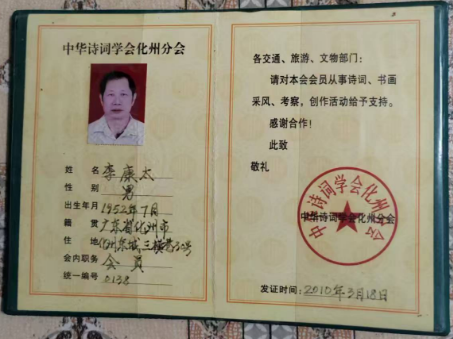 中华诗词学会化州分会
姓名 李康太
性别 男
出生年月 1952年7月
籍贯 广东省化州市
住地 化州东城三横巷3号
会内职务 会员
统一编号 0138
各交通、旅游、文物部门：
请对本会会员从事诗词、书画
采风、考察，创作活动给予支持。
感谢合作！
此致
敬礼
中华诗词学会化州分会
中华诗词学会化州分会
发证时间：2010年3月18日